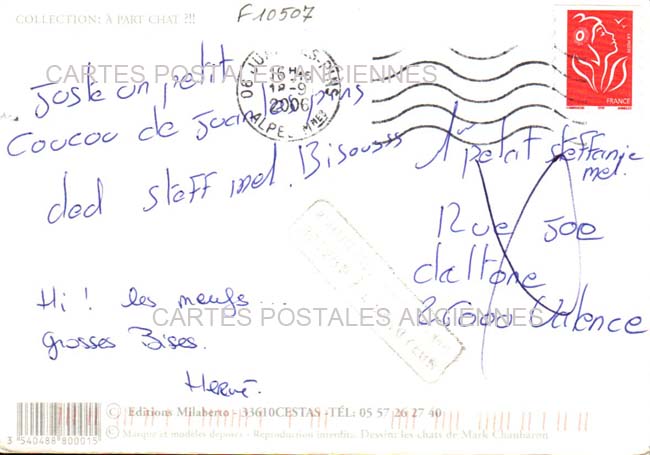 COLLECTION: À PART CHAT ?!!
F10507
CARTES POSTALES ANCIENNES
Juste un petit
Coucou de Juan les pins
ded steff mel. Bisousss
Hi! les meufs...
Grosses Bises.
Hervé.
06 JUAN-LES-PINS
15H
18-9
2006
ALPES MMES
LA POSTE
FRANCE
petit steffanie
mel.
Rue Joe
daltone
26000 Valence
CARTES POSTALES ANCIENNES
© Editions Milaberto - 33610CESTAS -TÉL: 05 57 26 27 40
© Marque et modèles déposés - Reproduction interdite. Dessin: les chats de Mark Chambaron
3 540488 800015